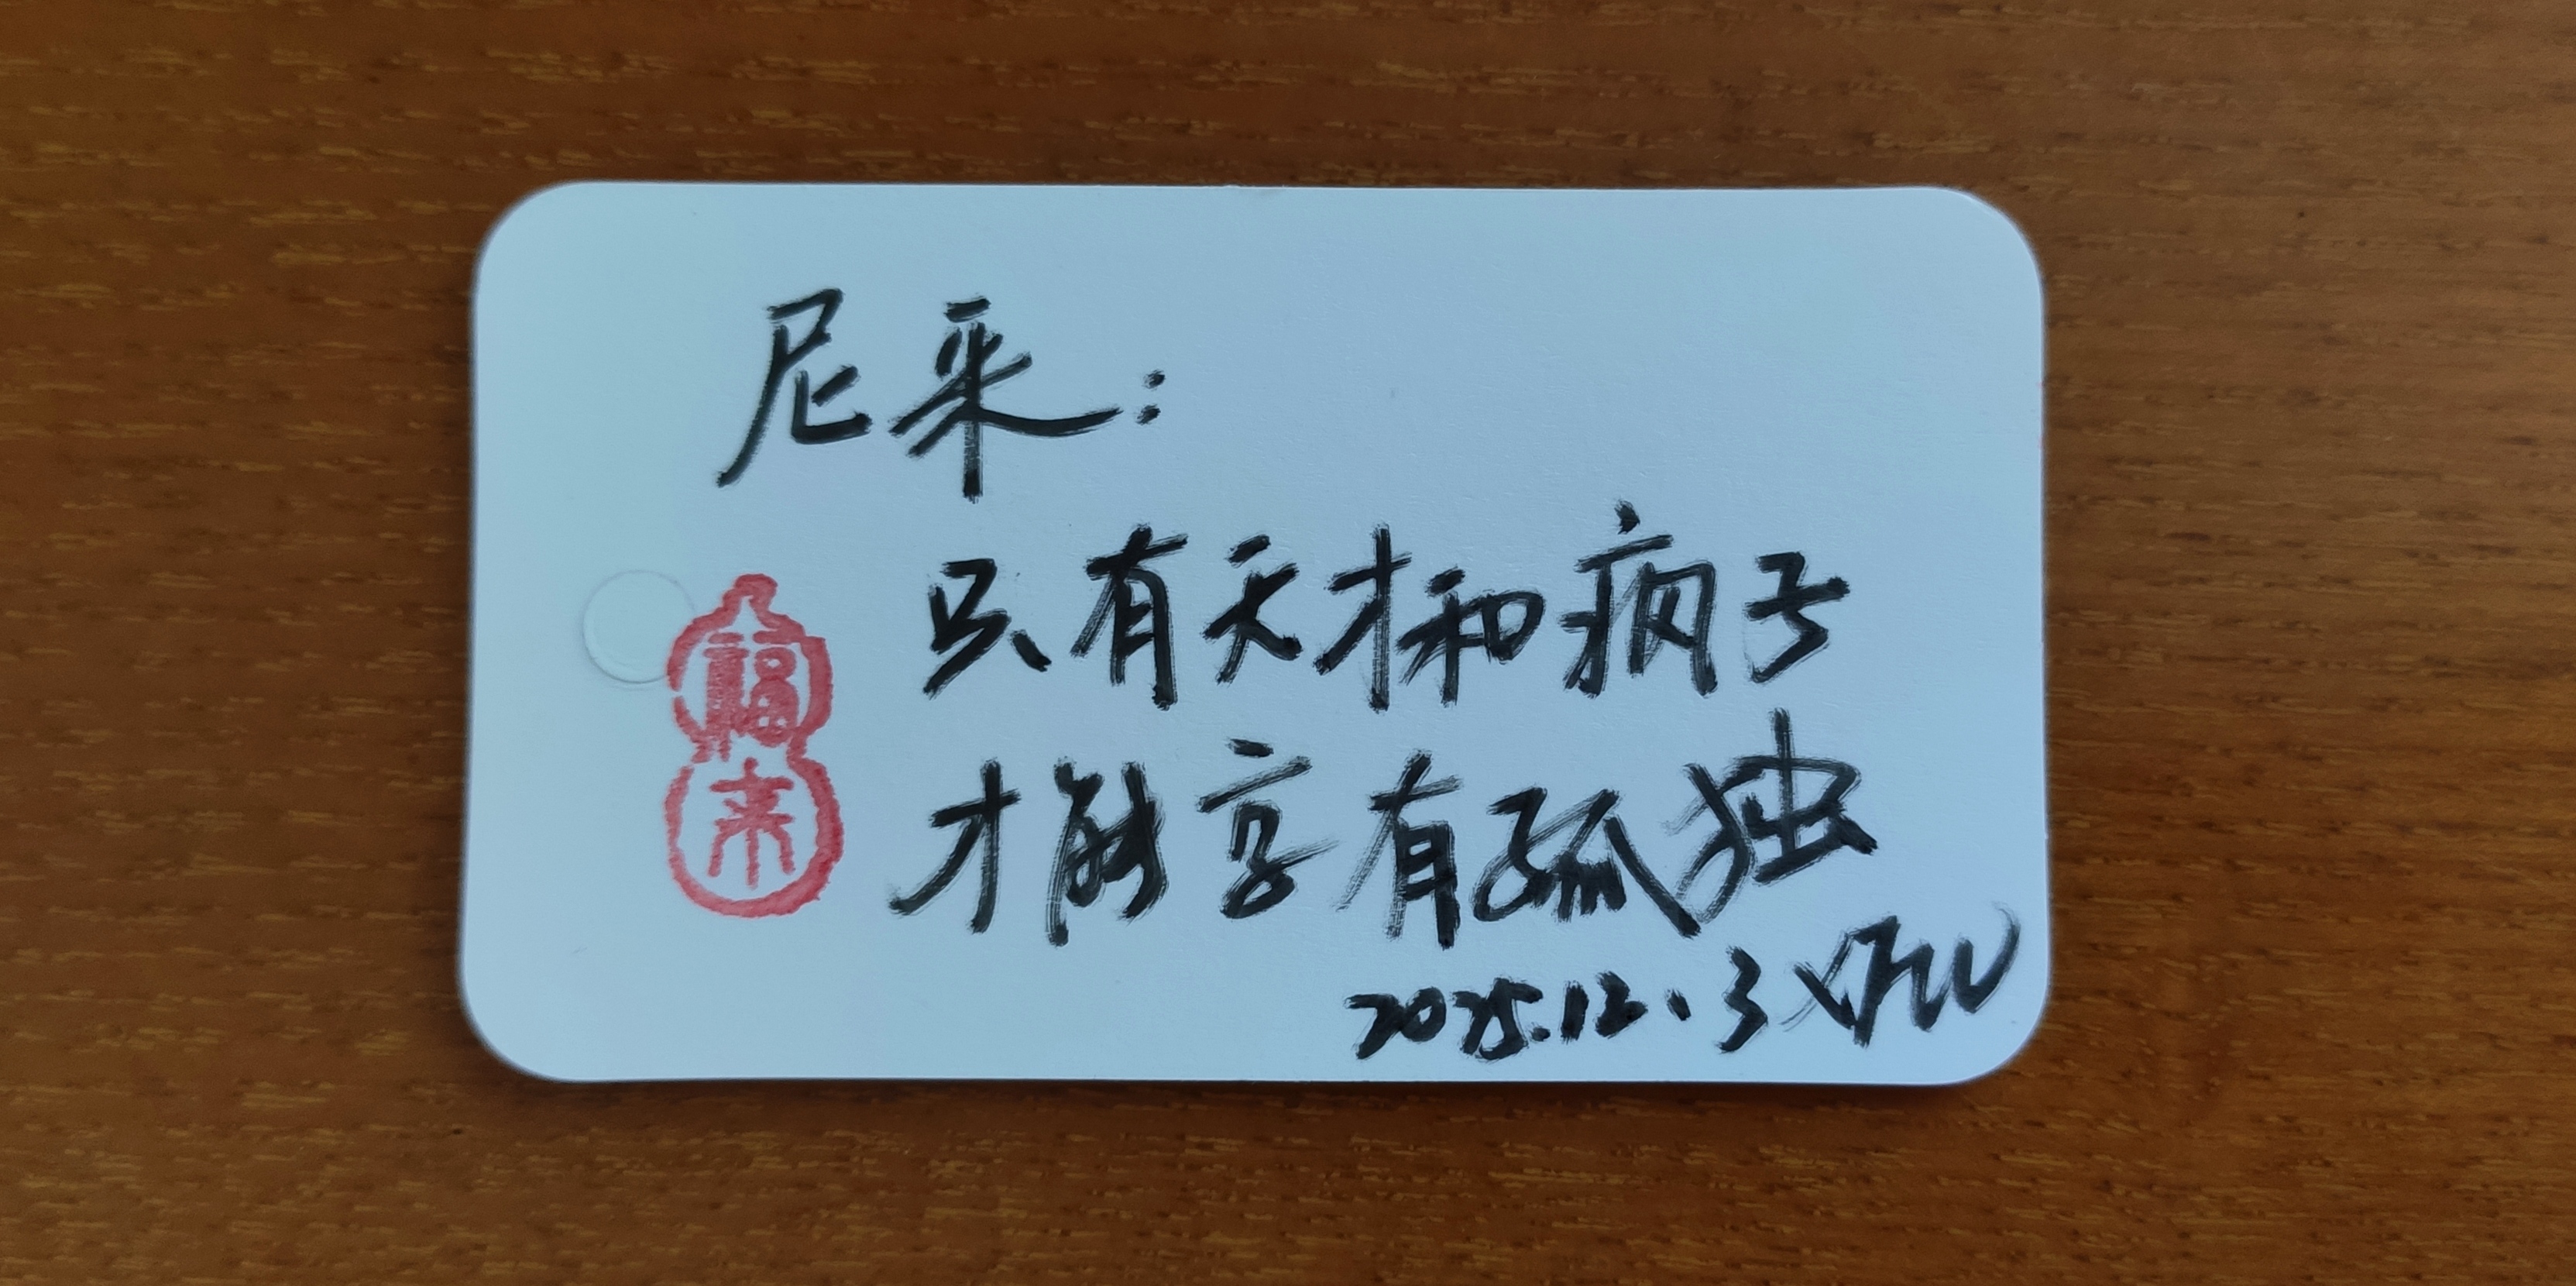 尼采：
只有天才和疯子
才能享有孤独
2025.12.3
福来